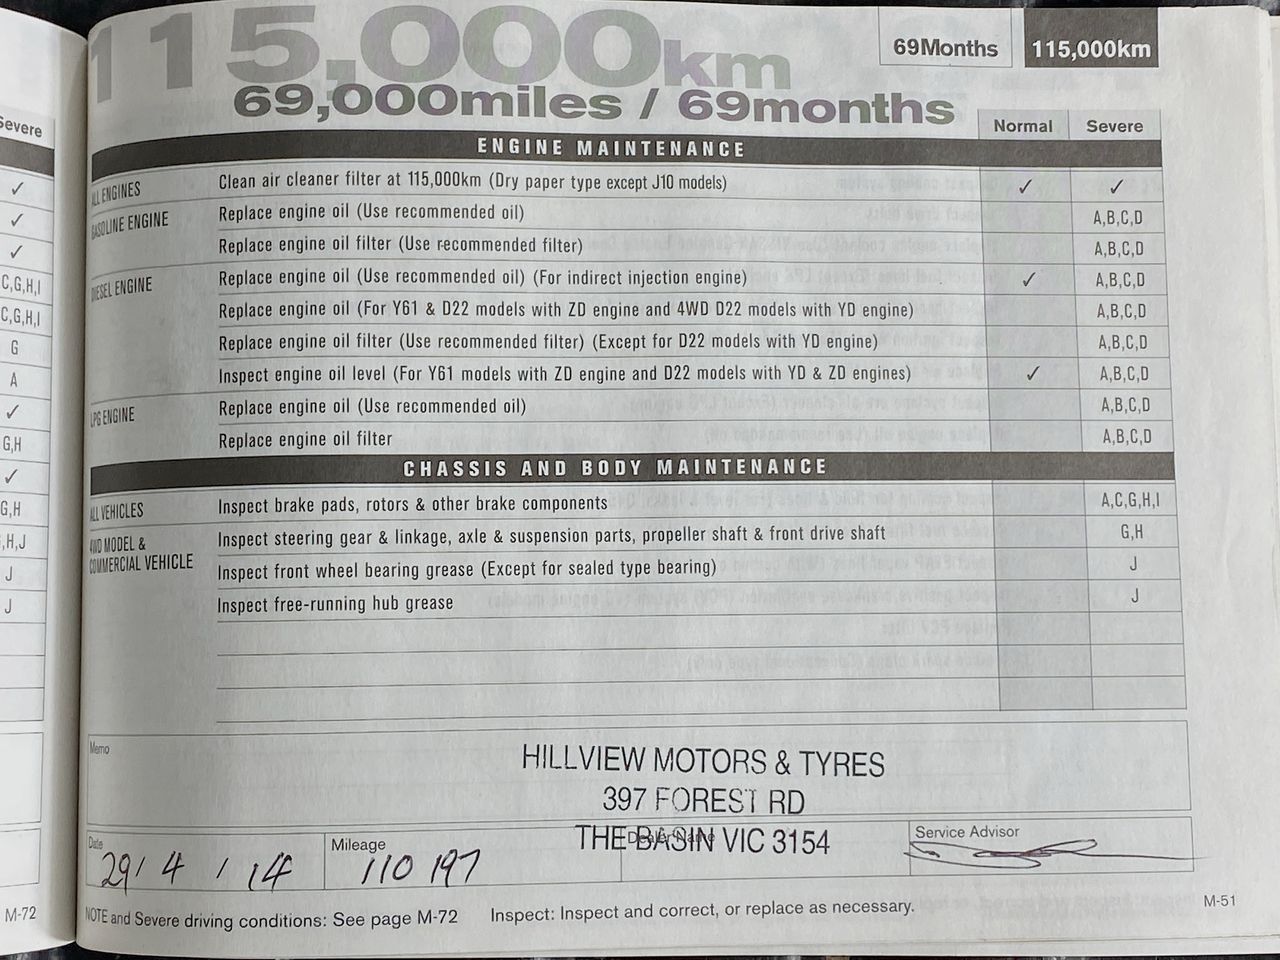 115,000km
69,000miles / 69months
69Months
115,000km
Normal Severe
ENGINE MAINTENANCE
ALL ENGINES Clean air cleaner filter at 115,000km (Dry paper type except J10 models) ✓ ✓
GASOLINE ENGINE Replace engine oil (Use recommended oil) A,B,C,D
Replace engine oil filter (Use recommended filter) A,B,C,D
DIESEL ENGINE Replace engine oil (Use recommended oil) (For indirect injection engine) ✓ A,B,C,D
Replace engine oil (For Y61 & D22 models with ZD engine and 4WD D22 models with YD engine) A,B,C,D
Replace engine oil filter (Use recommended filter) (Except for D22 models with YD engine) A,B,C,D
Inspect engine oil level (For Y61 models with ZD engine and D22 models with YD & ZD engines) ✓ A,B,C,D
LPG ENGINE Replace engine oil (Use recommended oil) A,B,C,D
Replace engine oil filter A,B,C,D
CHASSIS AND BODY MAINTENANCE
ALL VEHICLES Inspect brake pads, rotors & other brake components A,C,G,H,I
4WD MODEL & COMMERCIAL VEHICLE Inspect steering gear & linkage, axle & suspension parts, propeller shaft & front drive shaft G,H
Inspect front wheel bearing grease (Except for sealed type bearing) J
Inspect free-running hub grease J
Memo
HILLVIEW MOTORS & TYRES
397 FOREST RD
THE BASIN VIC 3154
Date 29/ 4 / 14
Mileage 110 197
Dealer Name
Service Advisor
NOTE and Severe driving conditions: See page M-72 Inspect: Inspect and correct, or replace as necessary.
M-51
Severe
✓
✓
✓
C,G,H,I
C,G,H,I
G
A
✓
G,H
✓
G,H
,H,J
J
J
M-72